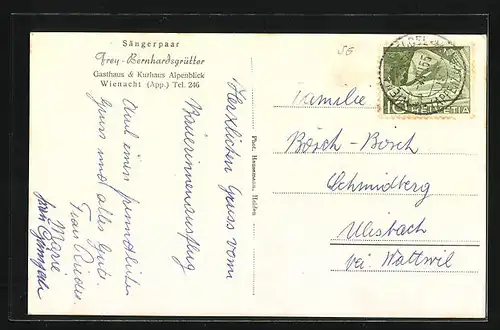 Sängerpaar
Frey-Bernhardsgrütter
Gasthaus & Kurhaus Alpenblick
Wienacht (App.) Tel. 246
Herzlichen Gruss vom
Bäuerinnenausflug
Und einen freundlichen
Gruss und alles Gute.
Frau Rüdes
Marie
Phot. Hausamann, Heiden
56
HELVETIA
Familie
Bösch-Bösch
Schmidberg
Ulisbach
bei Wattwil